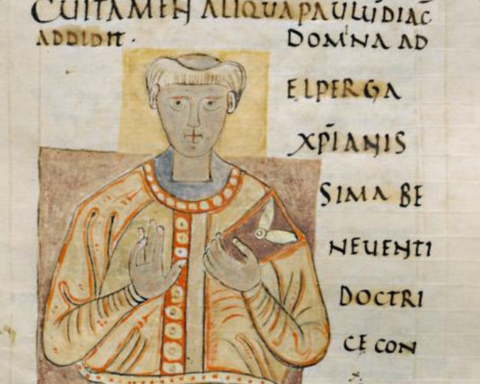 CUITAMEN ALIQUAPAULUSDIAC̄
ADDIDIT.
DOMINA AD
ELPERGA
XP̄IANIS
SIMA BE
NEUENTI
DOCTRI
CE CON